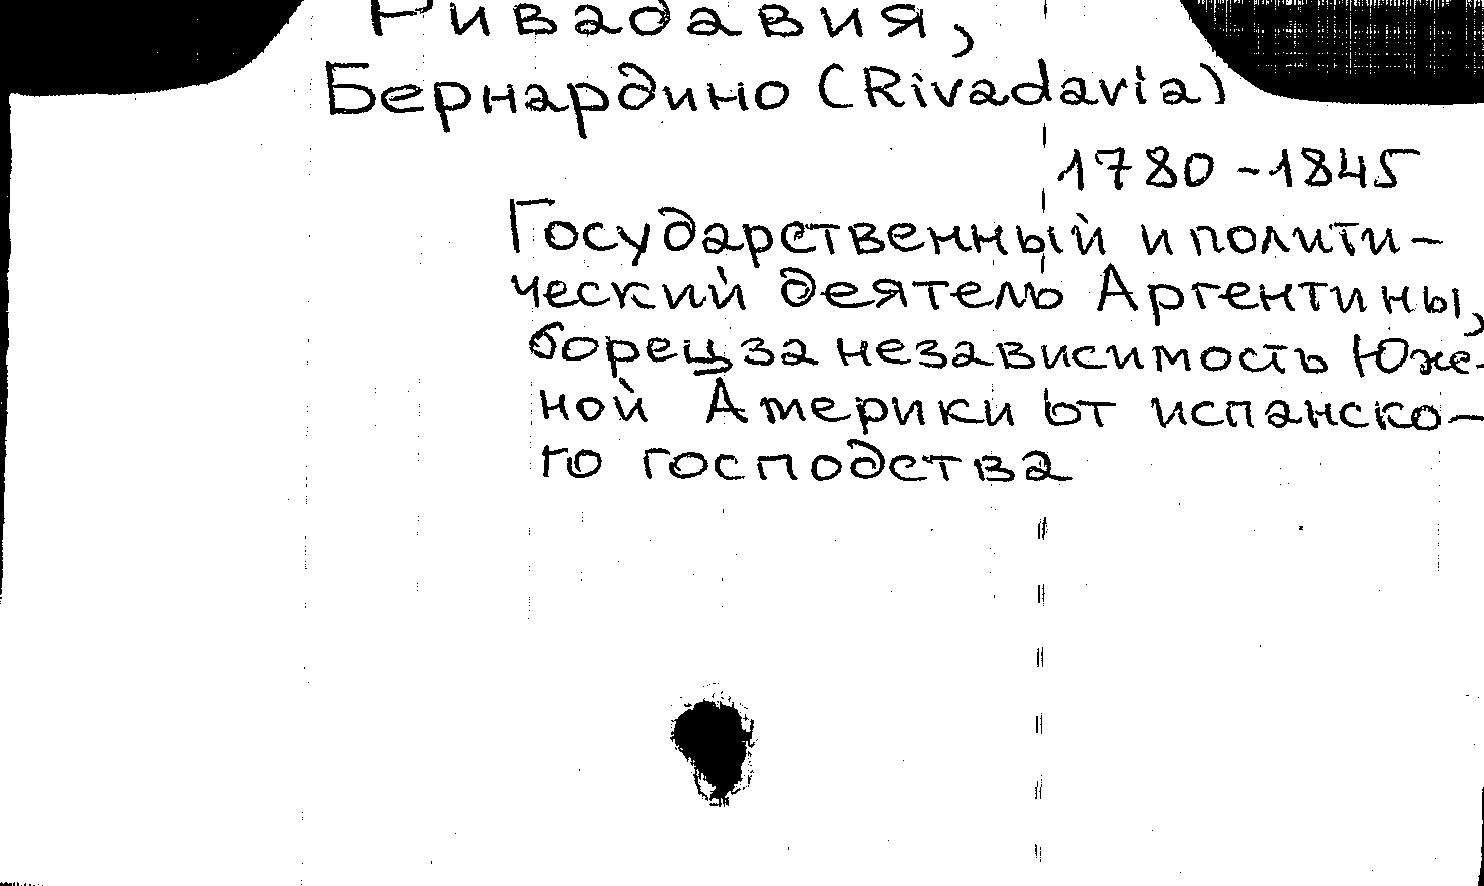 Ривадавия,
Бернардино (Rivadavia)
1780-1845
Государственный и полити-
ческий деятель Аргентины,
борец за независимость Юже-
ной Америки от испанско-
го господства